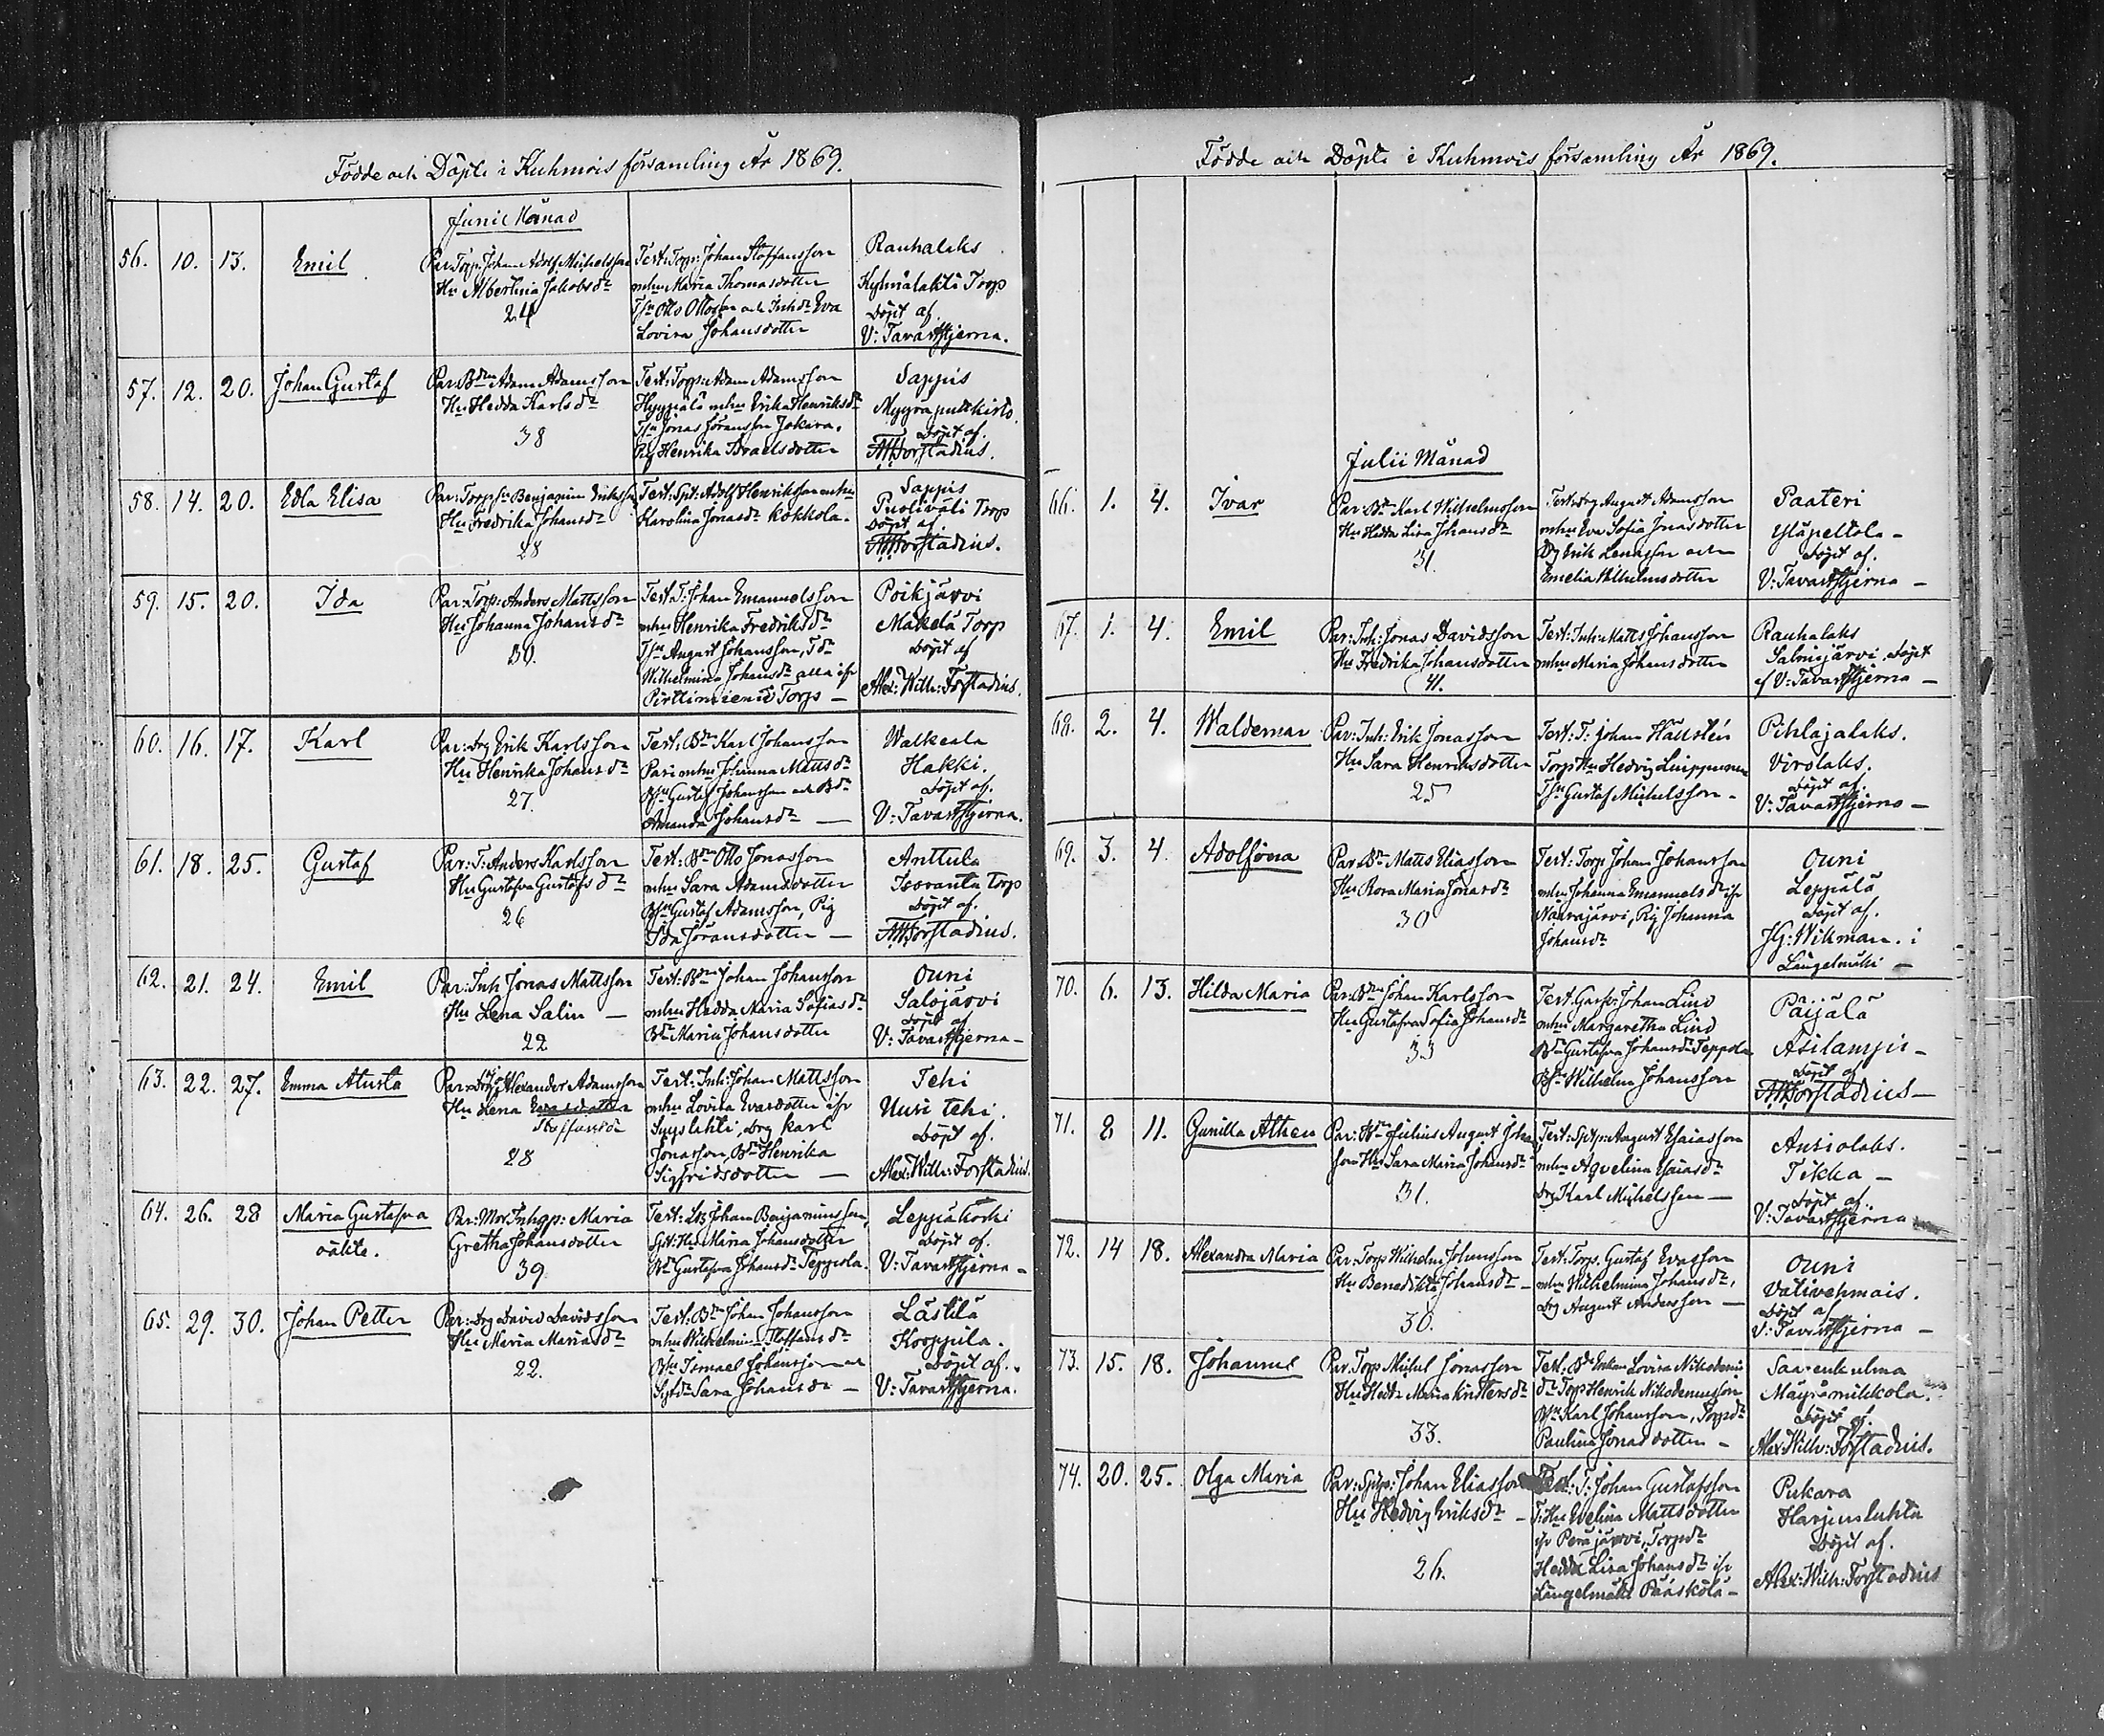 Födde och Döpte i Kuhmois församling År 1869.
Junii Månad
56. 10. 13. Emil
Par: Torp: Johan Adolf Michelsson
Hu Albertina Jakobsdr
24
Test: Torp: Johan Staffansson
mhu Maria Thomasdotter
Tsn Otto Ottosson och Inhdr Eva
Lovisa Johansdotter
Rauhalaks
Kylmälakti Torp
Döpt af.
V: Tavaststjerna.
57. 12. 20. Johan Gustaf
Par: Bdn Adam Adamsson
Hu Hedda Karlsdr
38
Test: Torp: Adam Adamsson
Hyypiälä mhu Erika Henriksdr
Tsn Jonas Göransson Jokira.
Pig Henrika Israelsdotter
Sappis
Myyräpulkkirto
Döpt af.
AWForstadius.
58. 14. 20. Edla Elisa
Par: Torpsn Benjamin Eriksson
Hu Fredrika Johansdr
28
Test: Spt: Adolf Henriksson mhu
Karolina Jonasdr Kokkola.
Sappis
Puoliväli Torp
Döpt af.
AWForstadius.
59. 15. 20. Ida
Par: Torp: Anders Mattsson
Hu Johanna Johansdr
30.
Test: T: Johan Emanuelsson
mhu Henrika Fredriksdr
Tsn August Johansson, Tdr
Wilhelmina Johansdr alla ifr
Pirttiniemi Torp —
Poikjärvi
Mäkelä Torp
Döpt af
Alex: Wilh: Forstadius.
60. 16. 17. Karl
Par: Drg Erik Karlsson
Hu Henrika Johansdr
27.
Test: Bdn Karl Johansson
Pari mhu Johanna Mattsdr
Bsn Gustaf Johansson och Bdr
Amanda Johansdr —
Walkeala
Hakki.
Döpt af.
V: Tavaststjerna.
61. 18. 25. Gustaf
Par: T: Anders Karlsson
Hu Gustafva Gustafsdr
26
Test: Bdn Otto Jonasson
mhu Sara Adamsdotter
Bsn Gustaf Adamsson, Pig
Ida Göransdotter —
Anttula
Isoranta Torp
Döpt af.
AWForstadius.
62. 21. 24. Emil
Par: Inh Jonas Mattsson
Hu Lena Salin —
22
Test: Bdn Johan Johansson
mhu Hedda Maria Sofiasdr
Bdr Maria Johansdotter
Ouni
Salojärvi
Döpt af
V: Tavaststjerna —
63. 22. 27. Emma Atusta
Par: Drg Alexander Adamsson
Hu Lena Evasdotter
Staffansdr
28
Test: Inh: Johan Mattsson
mhu Lovisa Evasdotter ifr
Syyslahti, Drg Karl
Jonasson, Bdr Henrika
Sigfridsdotter —
Tehi
Uusi tehi.
Döpt af.
Alex: Wilh: Forstadius.
64. 26. 28 Maria Gustafva
oäkta.
Par: Mor Inhqp: Maria
Gretha Johansdotter
39
Test: Johan Benjaminsson,
Spt: Hu Maria Johansdotter
Bdr Gustafva Johansdr Teppola.
Leppäkoski
Döpt af.
V: Tavaststjerna —
65. 29. 30. Johan Petter
Par: Drg David Davidsson
Hu Maria Mariasdr
22.
Test: Bdn Johan Johansson
mhu Wilhelmina Staffansdr
Bsn Ismael Johansson och
Sptdr Sara Johansdr —
Lästilä
Hoppila.
Döpt af.
V: Tavaststjerna.
Födde och Döpte i Kuhmois församling År 1869.
Julii Månad
66. 1. 4. Ivar
Par: Bdn Karl Wilhelmsson
Hu Hedda Lisa Johansdr
31.
Test: Drg August Adamsson
mhu Eva Sofia Jonasdotter
Drg Erik Lenasson och
Emelia Wilhelmsdotter
Paateri
Yläpeltola —
Döpt af.
V: Tavaststjerna —
67. 1. 4. Emil
Par: Inh: Jonas Davidsson
Hu Fredrika Johansdotter
41.
Test: Inh: Matts Johansson
mhu Maria Johansdotter
Rauhalaks
Salmisjärvi. Döpt
af V: Tavaststjerna —
68. 2. 4. Waldemar
Par: Inh: Erik Jonasson
Hu Sara Henriksdotter
25
Test: T: Johan Hällstén
Torp Hu Hedvig
Tsn Gustaf Michelsson —
Pihlajalaks.
Virolaks.
Döpt af.
V: Tavaststjerna —
69. 3. 4. Adolfina
Par: Bdn Matts Eliasson
Hu Rosa Maria Jonasdr
30
Test: Torp Johan Johansson
mhu Johanna Emanuelsdr ifr
Naarajärvi, Pig Johanna
Johansdr
Ouni
Leppälä
Döpt af.
JG: Wikman. i
Längelmäki —
70. 6. 13. Hilda Maria
Par: Bdn Johan Karlsson
Hu Gustafva Sofia Johansdr
33
Test: Garfv: Johan Lind
mhu Margaretha Lind
Bdr Gustafva Johansdr Teppola
Bsn Wilhelm Johansson
Päijälä
Asilampi —
Döpt af
AWForstadius —
71. 8 11. Gunilla Athea
Par: Bdn Julius August Johans
son Hu Sara Maria Johansdr
31.
Test: Sptp: August Esaiasson
mhu Aqvelina Esaiasdr
Drg Karl Michelsson —
Ansiolaks.
Tikka —
Döpt af.
V: Tavaststjerna
72. 14 18. Alexandra Maria
Par: Torp Wilhelm Johansson
Hu Benedikta Johansdr —
30.
Test: Torp. Gustaf Evasson
mhu Wilhelmina Johansdr,
Drg August Andersson —
Ouni
Välivehmais.
Döpt af
V: Tavaststjerna —
73. 15. 18. Johannes
Par: Torp Michel Jonasson
Hu Hedda Maria Kristersdr
33.
Test: Bdr Enkan Lovisa Nikodemi
dr Torp Henrik Nikodemusson
Bsn Karl Johansson, Torpdr
Paulina Jonasdotter —
Saarenkulma
Mäyrämikkola.
Döpt af.
Alex: Wilh: Forstadius.
74. 20. 25. Olga Maria
Par: Sptp: Johan Eliasson
Hu Hedvig Eriksdr —
26.
Test: T: Johan Gustafsson
T: Hu Evelina Mattsdotter
ifr Peräjärvi, Torpdr
Hedda Lisa Johansdr ifr
Längelmäki Pääskölä —
Pukara
Harjunluhta
Döpt af.
Alex: Wilh: Forstadius